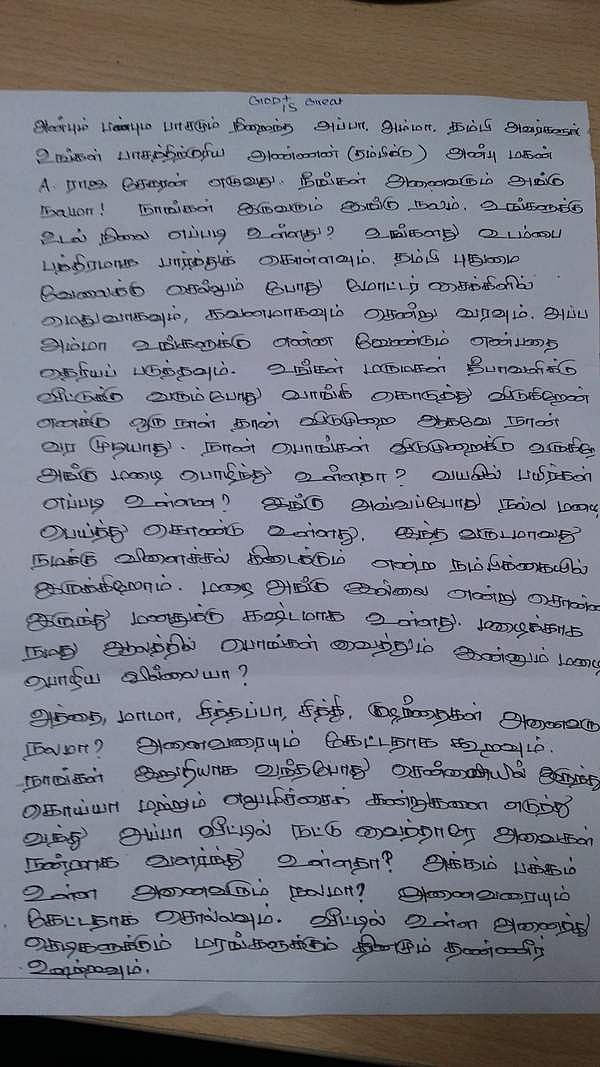 GOD IS Great
அன்பும் பண்பும் பாசமும் நிறைந்த அப்பா, அம்மா, தம்பி அவர்களுக்கு
உங்கள் பாசத்திற்குரிய அண்ணன் (தம்பிக்கு) அன்பு மகன்
A. ராஜ சேகரன் எழுவது. நீங்கள் அனைவரும் அங்கு
நலமா! நாங்கள் இருவரும் இங்கு நலம். உங்களுக்கு
உடல் நிலை எப்படி உள்ளது? உங்களது உடம்பை
பத்திரமாக பார்த்துக் கொள்ளவும். தம்பி புதுமை
வேலைக்கு செல்லும் போது மோட்டர் சைக்கிளில்
மெதுவாகவும், கவனமாகவும் சென்று வரவும். அப்ப
அம்மா உங்களுக்கு என்ன வேண்டும் என்பதை
தெரியப் படுத்தவும். உங்கள் மருமகள் தீபாவளிக்கு
வீட்டுக்கு வரும்போது வாங்கி கொடுத்து விடுகிறேன்
எனக்கு ஒரு நாள் தான் விடுமுறை ஆகவே நான்
வர முடியாது. நான் பொங்கள் விடுமுறைக்கு
அங்கு மழை பொழிந்து உள்ளதா? வயலில் பயிர்கள்
எப்படி உள்ளன? இங்கு அவ்வப்போது நல்ல மழை
பெய்த்து கொண்டு உள்ளது. இந்த வருடமாவது
நமக்கு விளைச்சல் கிடைக்கும் என்ற நம்பிக்கையில்
இருக்கிறோம். மழை அங்கு இல்லை என்று சொன்ன
இருந்து மனதுக்கு கஷ்டமாக உள்ளது. மழைக்காக
நமது ஆலத்தில் பொங்கள் வைத்தும் இன்னும் மழை
பொழிய வில்லையா?
அத்தை, மாமா, சித்தப்பா, சித்தி, குழந்தைகள் அனைவரு
நலமா? அனைவரையும் கேட்டதாக கூறவும்.
நாங்கள் இறுதியாக வந்தபோது சென்னையில் இருந்து
கொய்யா மற்றும் எலுமிச்சைக் கன்றுகளை எடுத்து
வந்து அப்பா வீட்டில் நட்டு வைத்தாரே அவைகள்
நன்றாக வளர்ந்து உள்ளதா? அக்கம் பக்கம்
உள்ள அனைவரும் நலமா? அனைவரையும்
கேட்டதாக சொல்லவும். வீட்டில் உள்ள அனைத்து
செடிகளுக்கும் மரங்களுக்கும் தினமும் தண்ணீர்
ஊற்றவும்.